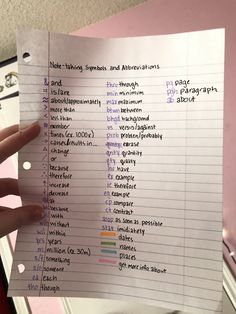 Note-taking Symbols and Abbreviations
& and
is/are
about/approximately
more than
less than
# number
boxes (ex. 1000x)
cause/results in...
Δ change
or
because
therefore
increase
decrease
at
because
with
without
within
yrs years
million (ex. 30m)
s/t something
s/o someone
ea each
tho though
thru through
min minimum
max maximum
btwn between
bkgd background
vs versus/against
prob problem/probably
quantity
have
ex example
ie therefore
eg example
cp compare
ct contrast
asap as soon as possible
stat
dates
names
places
get more info about
pg page
pgh paragraph
ab about